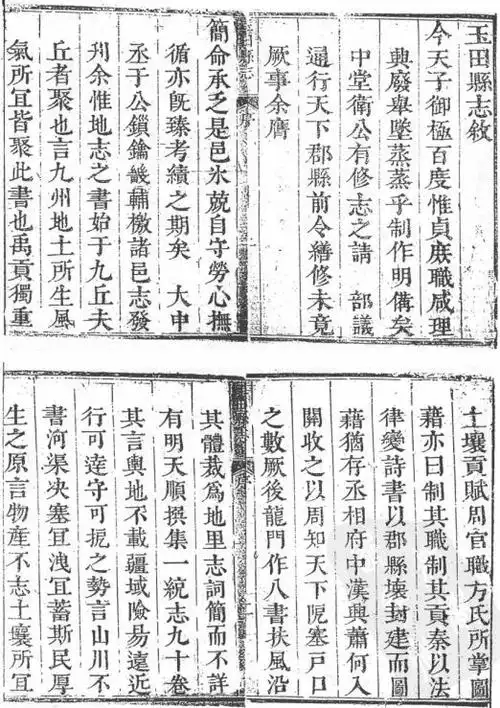 玉田縣志敘
今天子御極百度惟貞庶職咸理
典廢舉墜蒸蒸乎制作明備矣
中堂衛公有修志之請　部議
通行天下郡縣前令繕修未竟
厥事余膺
簡命承乏是邑氷兢自守勞心撫
循亦旣臻考績之期矣　大中
丞于公鎖鑰畿輔檄諸邑志發
刋余惟地志之書始于九丘夫
丘者聚也言九州地土所生風
氣所宜皆聚此書也禹貢獨重
土壤貢賦周官職方氏所掌圖
藉亦曰制其職制其貢秦以法
律變詩書以郡縣壞封建而圖
藉猶存丞相府中漢興蕭何入
關收之以周知天下阨塞戸口
之數厥後龍門作八書扶風沿
其體裁爲地里志詞簡而不詳
有明天順撰集一統志九十卷
其言輿地不載疆域險易遠近
行可逹守可扼之勢言山川不
書河渠决塞宜洩宜蓄斯民厚
生之原言物產不志土壤所宜